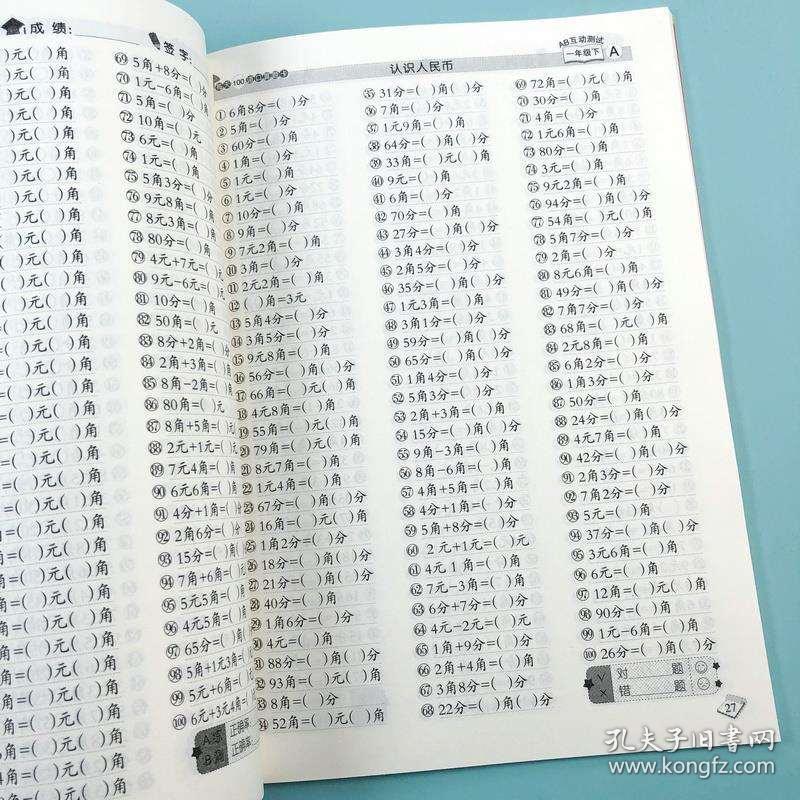 成 绩:
签 字:
)元( )角
69 5角+8分=(
70 1元-6角=(
71 5角=( )分
72 10角=( )元
73 6元=( )角
74 1元=( )角
75 5角3分=(
76 9元8角=(
77 8元3角=(
78 80分=( )角
79 4元+7元=(
80 9元-6元=(
81 10分=( )角
82 50角=( )元
83 8分+2角=(
84 2角+3角=(
85 8角-2角=(
86 80角=( )元
87 8角+5角=(
88 2元+1元=(
89 7元4角=(
90 6元6角=(
91 4分+1角=(
92 2角6分=(
93 15分=(
94 7角+6角=(
95 5元5角=(
96 4元5角=(
97 65分=(
98 5角+1元3角=(
99 5元+6角=(
100 6元+3元4角=(
认识人民币
AB互动测试
一年级下 A
① 6角8分=( )分
② 5角=( )分
③ 60分=( )角
④ 1角=( )分
⑤ 1元=( )角
⑥ 1元=( )分
⑦ 10分=( )角
⑧ 9角=( )分
⑨ 7元2角=( )角
⑩ 3角=( )分
⑪ 2元2角=( )角
⑫ ( )角=3元
⑬ 5角4分=( )分
⑭ 3角5分=( )分
⑮ 9元8角=( )角
⑯ 56分=( )角( )分
⑰ 66角=( )元( )角
⑱ 4元8角=( )角
⑲ 55角=( )元( )角
⑳ 79角=( )元( )角
21 8元7角=( )角
22 1元4角=( )角
23 67分=( )角( )分
24 16角=( )元( )角
25 1角2分=( )分
26 18分=( )角( )分
27 21分=( )角( )分
28 40分=( )角
29 1角6分=( )分
30 4元=( )角
31 88分=( )角( )分
32 93角=( )元( )角
33 8角=( )分
34 52角=( )元( )角
35 31分=( )角( )分
36 2角=( )分
37 1元9角=( )角
38 64分=( )角( )分
39 33角=( )元( )角
40 9元=( )角
41 6角=( )分
42 70分=( )角
43 27分=( )角( )分
44 3角4分=( )分
45 2角5分=( )分
46 35分=( )角( )分
47 1元3角=( )角
48 3角1分=( )分
49 59分=( )角( )分
50 65分=( )角( )分
51 1角4分=( )分
52 5角3分=( )分
53 2角+3角=( )角
54 15分=( )角( )分
55 9角-3角=( )角
56 8角-6角=( )角
57 4角+5角=( )角
58 4分+1角=( )分
59 5角+8分=( )分
60 2元+1元=( )元
61 4元1角=( )角
62 7元-3角=( )角
63 6分+7分=( )分
64 4元-2元=( )元
65 1角+9分=( )分
66 2角+4角=( )角
67 3角8分=( )分
68 22分=( )角( )分
69 72角=( )元( )角
70 30分=( )角
71 4角=( )分
72 1元6角=( )角
73 80分=( )角
74 3元=( )角
75 9元2角=( )角
76 94分=( )角( )分
77 54角=( )元( )角
78 5角7分=( )分
79 2角=( )分
80 8元6角=( )角
81 49分=( )角( )分
82 7角7分=( )分
83 68角=( )元( )角
84 2元8角=( )角
85 6角2分=( )分
86 1角3分=( )分
87 50分=( )角
88 24分=( )角( )分
89 4元7角=( )角
90 42分=( )角( )分
91 2角3分=( )分
92 7角2分=( )分
93 5元=( )角
94 37分=( )角( )分
95 3元6角=( )角
96 6元=( )角
97 12角=( )元( )角
98 90分=( )角
99 1元-6角=( )角
100 26分=( )角( )分
√ 对 题
× 错 题
27
孔夫子旧书网
www.kongfz.com